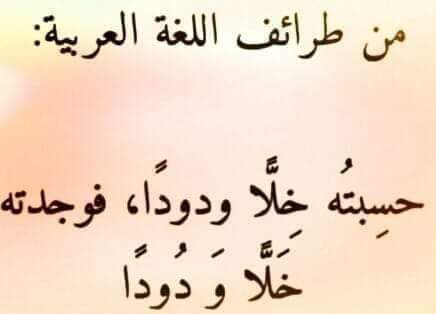 من طرائف اللغة العربية:
حسِبتُه خِلًّا ودودًا، فوجدته
خَلًّا وَ دُودًا